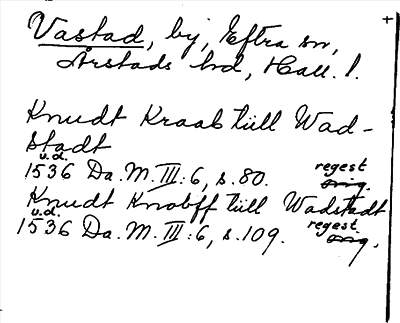 +
Vastad, by, Eftra sn,
Årstads hd, Hall. l.
Knudt Kraab tüll Wad-
stadt
u.d.
1536 Da. M. III: 6, s. 80. regest orig.
Knudt Knobff tüll Wadstadt
u.d.
1536 Da. M. III: 6, s. 109. regest orig.